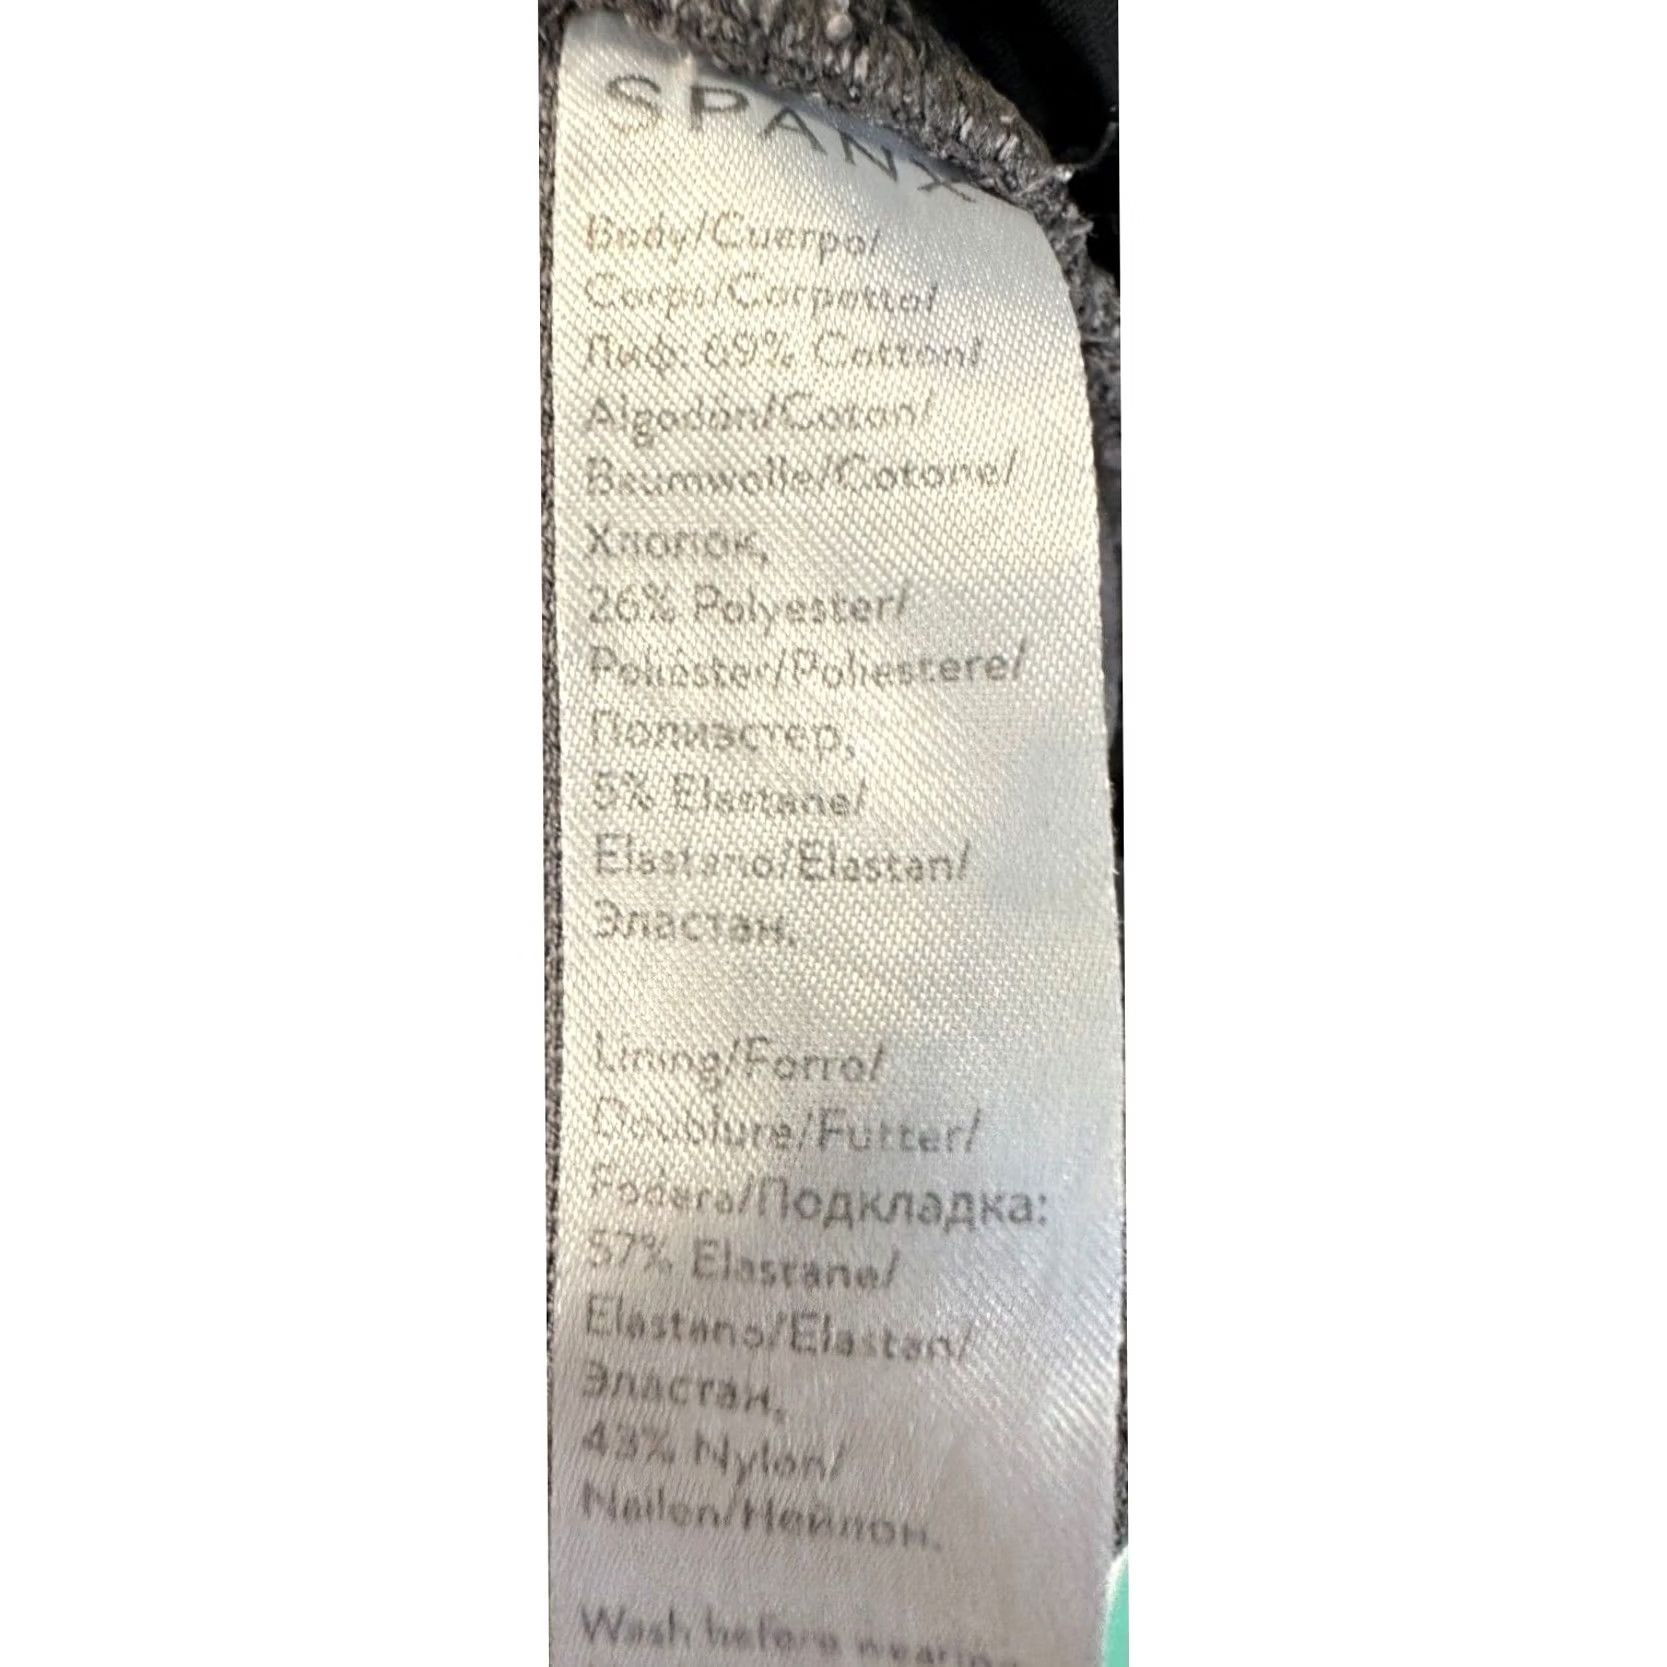 SPANX
Body/Cuerpo/
Corps/Corpetto/
Лиф: 69% Cotton/
Algodón/Coton/
Baumwolle/Cotone/
Хлопок,
26% Polyester/
Poliéster/Poliestere/
Полиэстер,
5% Elastane/
Elastano/Elastan/
Эластан.
Lining/Forro/
Doublure/Futter/
Fodera/Подкладка:
57% Elastane/
Elastano/Elastan/
Эластан,
43% Nylon/
Nailon/Нейлон.
Wash before wearing